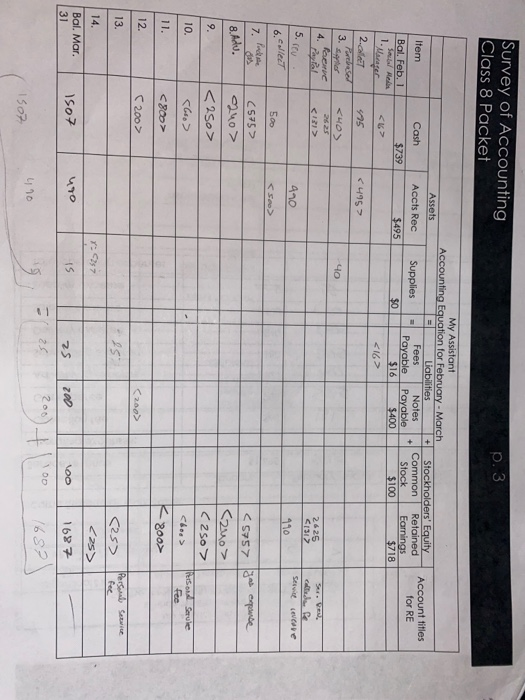 Survey of Accounting
Class 8 Packet
p. 3
My Assistant
Accounting Equation for February - March
Assets = Liabilities + Stockholders' Equity
Item Cash Accts Rec Supplies = Fees Payable Notes Payable + Common Stock Retained Earnings Account titles for RE
Bal. Feb. 1 $739 $495 $0 $16 $400 $100 $718
1. Social Media Manager <16> <16>
2. collect 495 <495>
3. Purchased supplies <40> 40
4. Revenue 2625 2625
PayPal <131> <131>
5. 490 490 service revenue
6. collect 500 <500>
7. <575> <575> gas expense
8. Adv. <240> <240>
9. <250> <250>
10. <600> <600> Personal Service Fee
11. <800> <800>
12. <200> <200>
13. 25 <25> Personal service fee
14. <25> <25>
Bal. Mar. 31 1507 490 15 25 200 100 1687
1507 490 15 = 25 200 + 100 1687